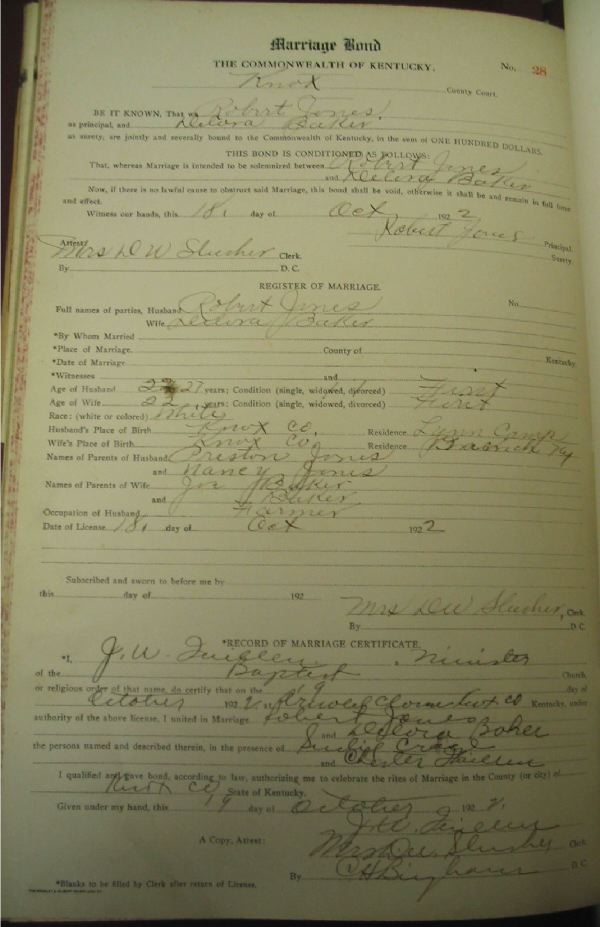 Marriage Bond
THE COMMONWEALTH OF KENTUCKY. No. 28
Knox County Court.
BE IT KNOWN, That we Robert Jones,
as principal, and Delora Baker
as surety, are jointly and severally bound to the Commonwealth of Kentucky, in the sum of ONE HUNDRED DOLLARS.
THIS BOND IS CONDITIONED AS FOLLOWS:
That, whereas Marriage is intended to be solemnized between Robert Jones
and Delora Baker
Now, if there is no lawful cause to obstruct said Marriage, this bond shall be void, otherwise it shall be and remain in full force
and effect.
Witness our hands, this 18. day of Oct 1922
Robert Jones Principal.
Surety.
Attest:
Mrs D W Slusher Clerk.
By D. C.
REGISTER OF MARRIAGE.
Full names of parties, Husband Robert Jones No.
Wife Delora Baker
*By Whom Married
*Place of Marriage. County of Kentucky
*Date of Marriage
*Witnesses and
Age of Husband 22 27 years; Condition (single, widowed, divorced) First
Age of Wife 22 years; Condition (single, widowed, divorced) First
Race: (white or colored) White
Husband's Place of Birth Knox Co. Residence Lynn Camp
Wife's Place of Birth Knox Co. Residence Ky
Names of Parents of Husband Preston Jones
and Nancy Jones
Names of Parents of Wife Joe Baker
and Baker
Occupation of Husband Farmer
Date of License 18. day of Oct 1922
Subscribed and sworn to before me by
this day of 192
Mrs D W Slusher, Clerk.
By D. C.
*RECORD OF MARRIAGE CERTIFICATE.
*I, J. W. , Minister
of the Baptist Church,
or religious order of that name, do certify that on the 19 day of
October 1922 at Knox Co Kentucky, under
authority of the above license, I united in Marriage Robert Jones
and Delora Baker
the persons named and described therein, in the presence of
and Chester
I qualified and gave bond, according to law, authorizing me to celebrate the rites of Marriage in the County (or city) of
Knox Co State of Kentucky.
Given under my hand, this 19 day of October 1922.
J. W.
A Copy, Attest: Mrs D W Slusher Clerk
By C H Bingham D. C.
*Blanks to be filled by Clerk after return of License.